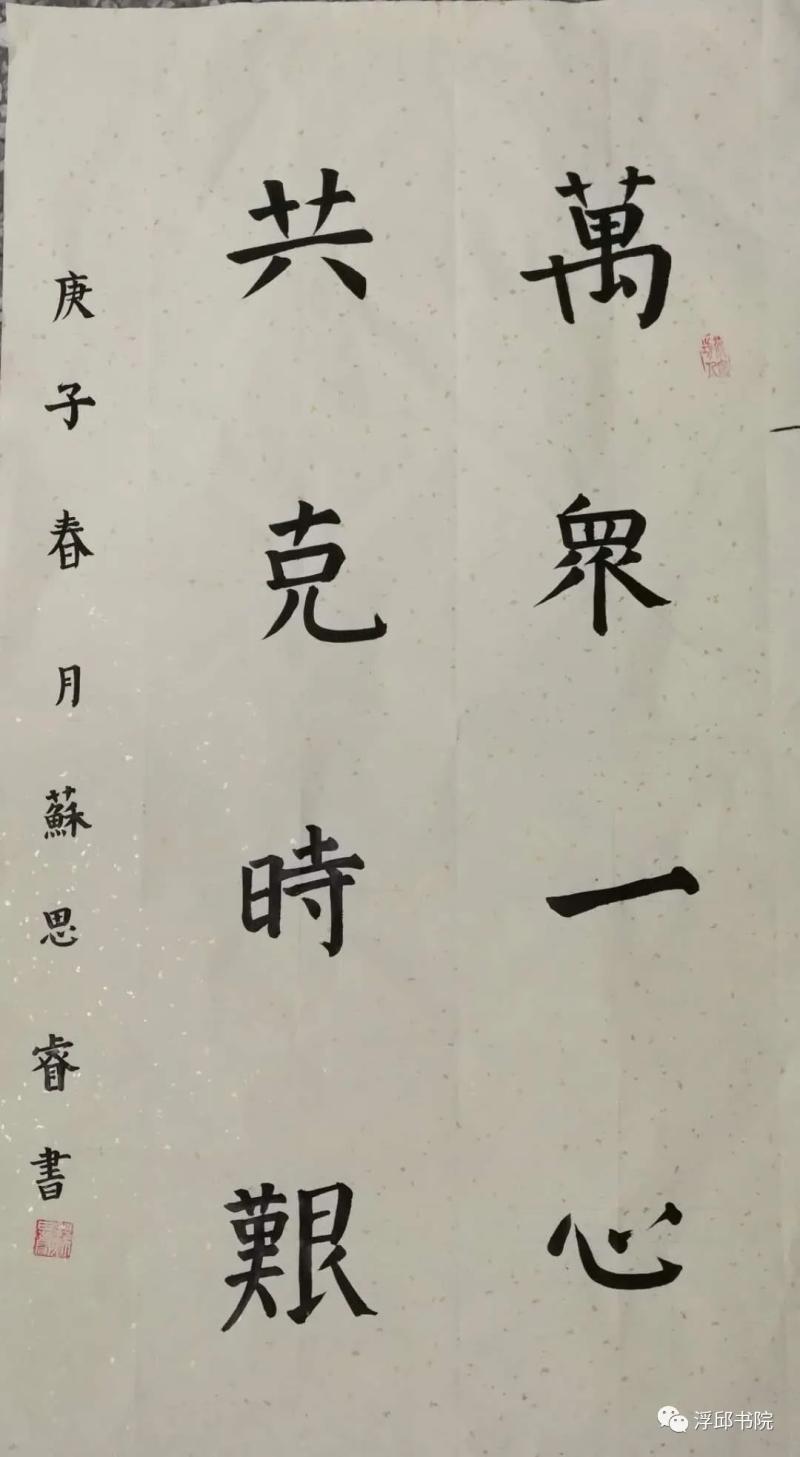 萬眾一心
共克時艱
庚子春月蘇思睿書
浮邱书院